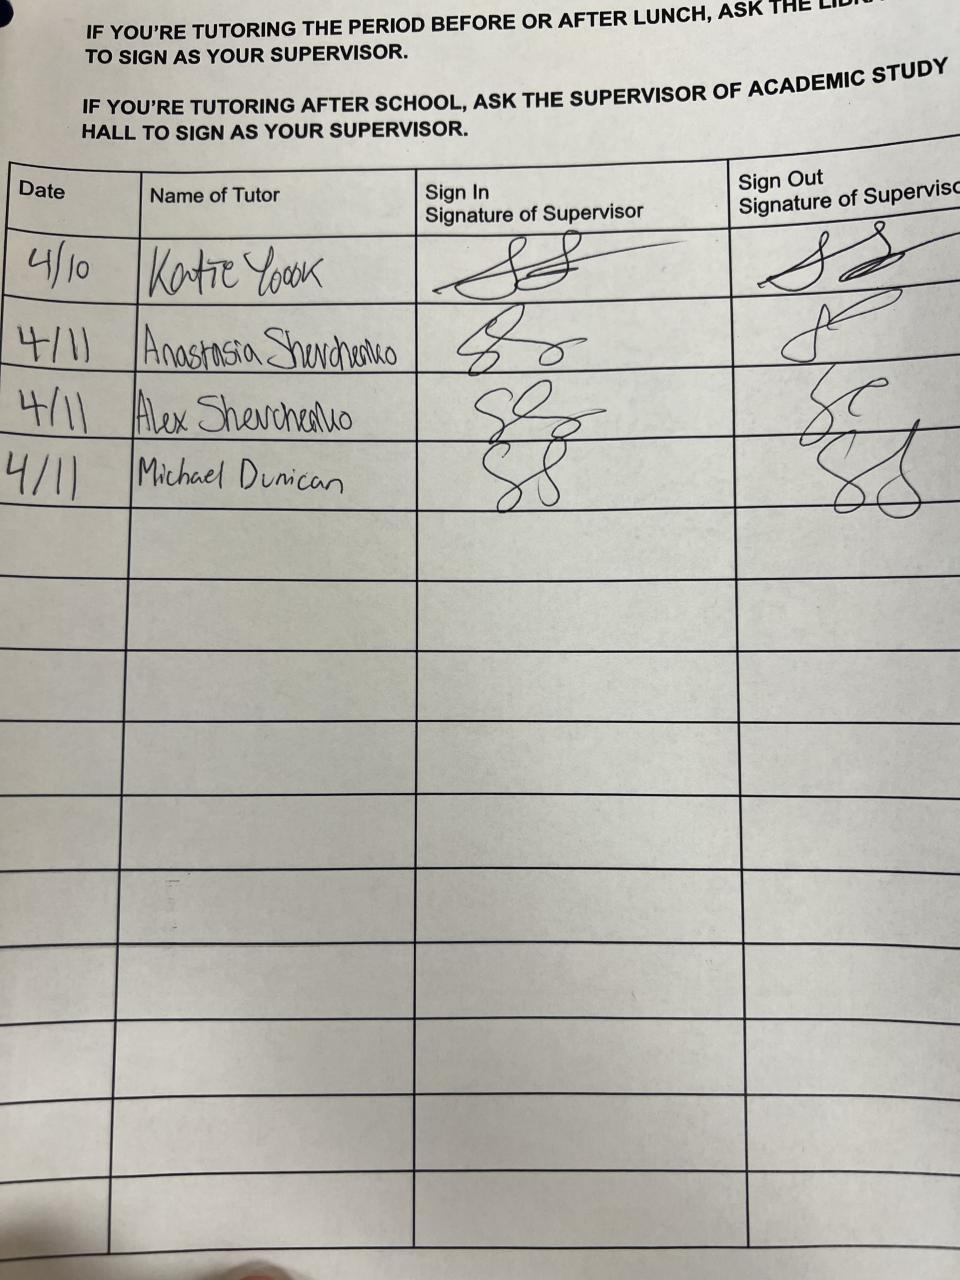 IF YOU'RE TUTORING THE PERIOD BEFORE OR AFTER LUNCH, ASK THE
TO SIGN AS YOUR SUPERVISOR.
IF YOU'RE TUTORING AFTER SCHOOL, ASK THE SUPERVISOR OF ACADEMIC STUDY
HALL TO SIGN AS YOUR SUPERVISOR.
Date Name of Tutor Sign In Signature of Supervisor Sign Out Signature of
4/10 Katie
4/11 Anastasia Shevchenko
4/11 Alex Shevchenko
4/11 Michael Dunican